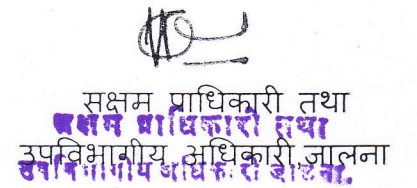 सक्षम प्राधिकारी तथा
सक्षम प्राधिकारी तथा
उपविभागीय अधिकारी,जालना
उपविभागीय अधिकारी जालना.